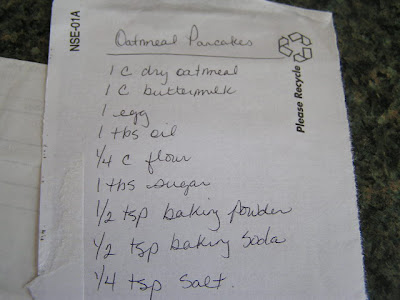 NSE-01A
Oatmeal Pancakes
Please Recycle
1 c dry oatmeal
1 c buttermilk
1 egg
1 tbs oil
1/4 c flour
1 tbs sugar
1/2 tsp baking powder
1/2 tsp baking soda
1/4 tsp salt.